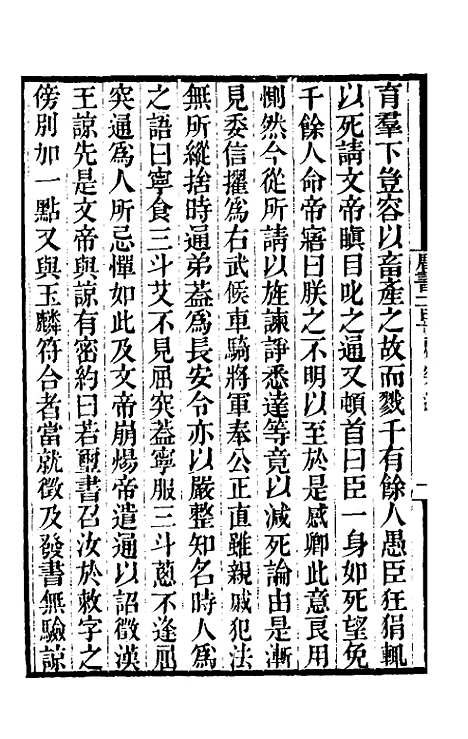 育羣下豈容以畜產之故而戮千有餘人愚臣狂狷輒
以死請文帝瞋目叱之通又頓首曰臣一身如死望免
千餘人命帝寤曰朕之不明以至於是感卿此意良用
惻然今從所請以旌諫諍悉達等竟以減死論由是漸
見委信擢爲右武候車騎將軍奉公正直雖親戚犯法
無所縱捨時通弟蓋爲長安令亦以嚴整知名時人爲
之語曰寧食三斗艾不見屈突蓋寧服三斗蔥不逢屈
突通爲人所忌憚如此及文帝崩煬帝遣通以詔徵漢
王諒先是文帝與諒有密約曰若璽書召汝於敕字之
傍別加一點又與玉麟符合者當就徵及發書無驗諒